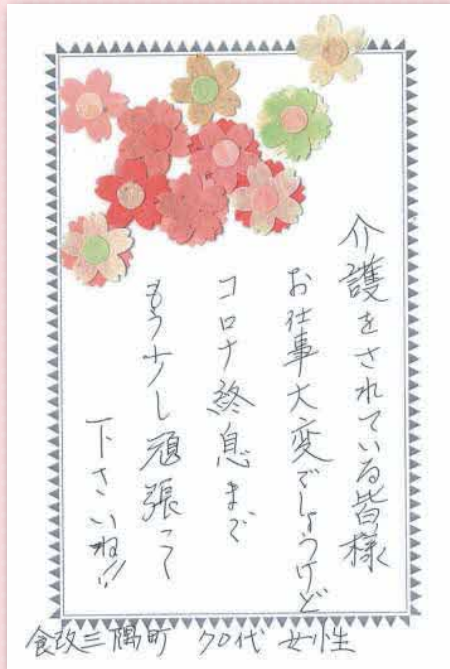 介護をされている皆様
お仕事大変でしょうけど
コロナ終息まで
もう少し頑張って
下さいね!!
食改三隅町 70代 女性